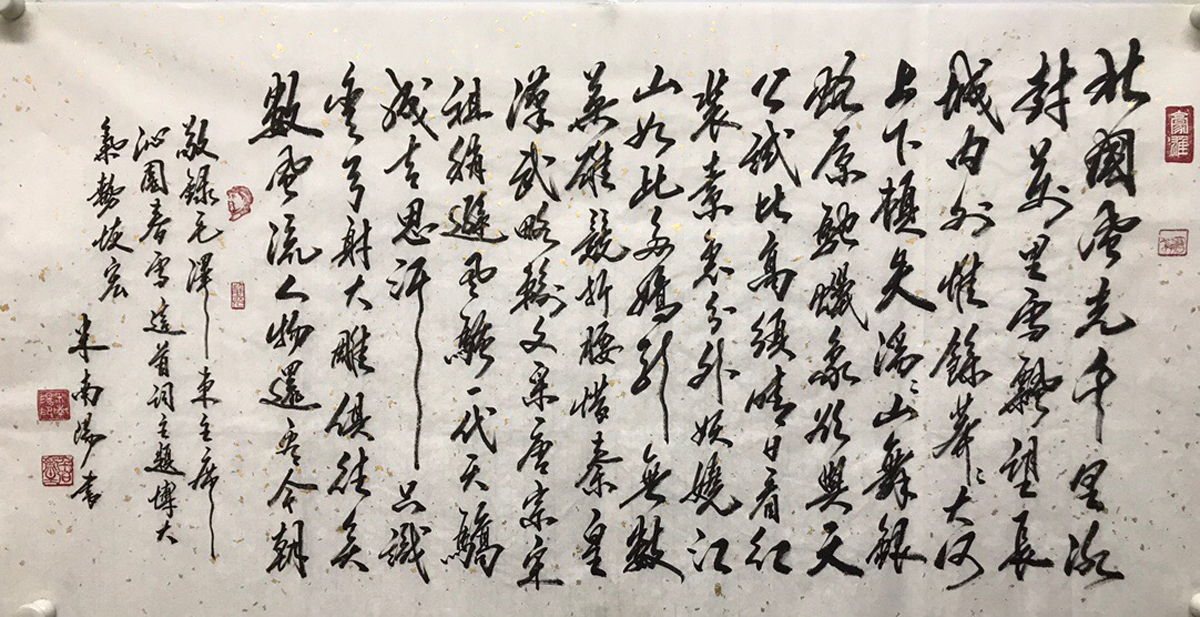 北國風光千里冰
封萬里雪飄望長
城內外惟餘莽〻大河
上下頓失滔〻山舞銀
蛇原馳蠟象欲與天
公試比高須晴日看紅
裝素裹分外妖嬈江
山如此多嬌引無數
英雄競折腰惜秦皇
漢武略輸文采唐宗宋
祖稍遜風騷一代天驕
成吉思汗只識
彎弓射大雕俱往矣
數風流人物還看今朝
敬錄毛澤東主席
沁園春雪這首詞主題博大
氣勢恢宏 米南陽書